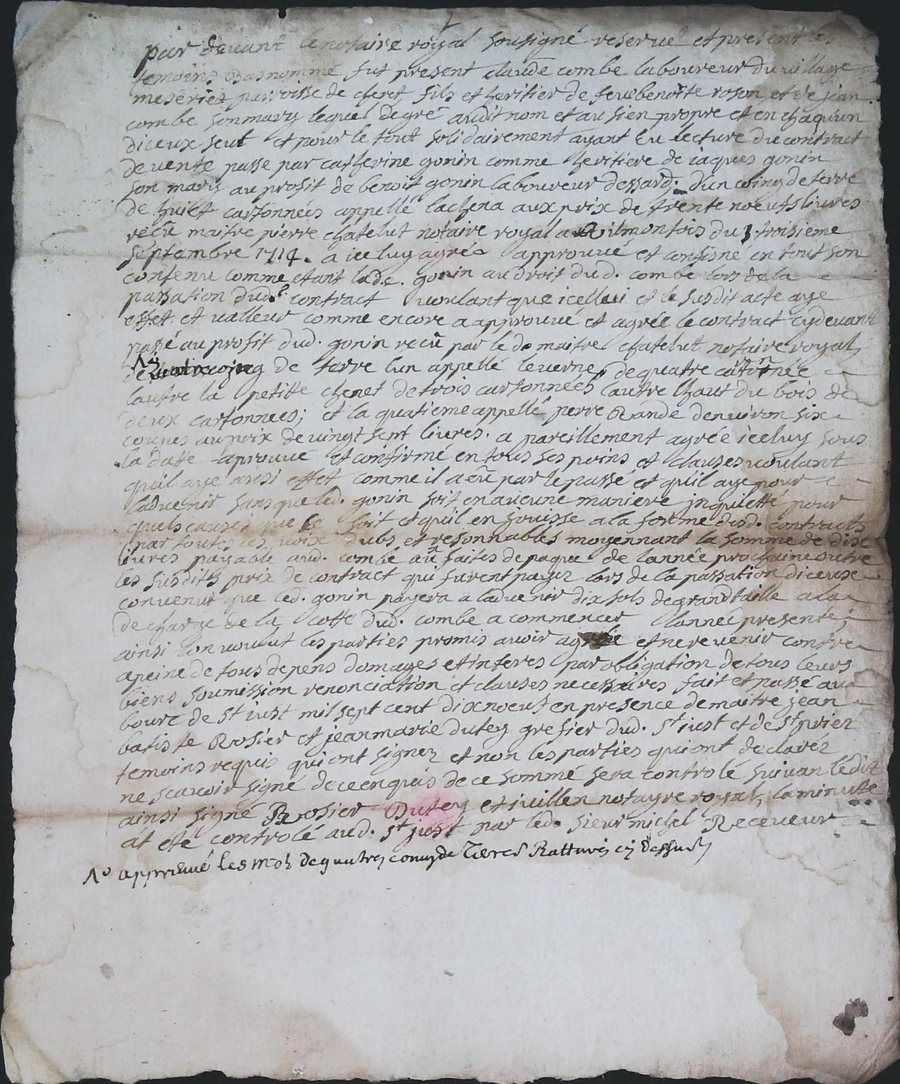 par devant le notaire royal sousigné reservé et present les
temoins bas nommé fut present claude combe laboureur du village
meseries parroisse de cheret fils et heritier de feue benoite roson et de jean
combe son mary lequel de gré audit nom et au sien propre et en chaqun
diceux seul et pour le tout solidairement ayant eu lecture du contract
de vente passe par catherine gonin comme heritiere de iaques gonin
son maris au profit de benoit gonin laboureur dessard. d'un coing de terre
de huict cartonnées appellé lachena aux prix de trente noeufs livres
recu maitre pierre chatelut notaire royal a du 3 troisieme
septembre 1714. a iceluy agréé approuvé et confirmé en tout son
contenu comme etant lad. gonin au droit dud. combe lors de la
passation dud.t contract voulant que icelluy et le susdit acte aye
effet et valleur comme encore a approuvé et agréé le contract cy devant
passé au profit dud. gonin recu par le d. maitre chatelut notaire royal
de quatre coing de terre l'un appellé leverne, de quatre cartonnée
lautre la petitte chenet de trois cartonnées lautre haut du bois de
deux cartonnées; et la quatieme appellé perre Rande denviron six
coupes au prix de vingt sept livres. a pareillement agréé iceluy sous
la date aprouvé et confirmé en tous ses poins et clauses voulant
quil aye aussi effet comme il a eu par le passé et quil aye pour
ladvenir sans que led. gonin soit en aucune maniere inquietté pour
quels cause que ce soit et quil en jouisse a la forme desd. contracts
par toutes les voix dubs et resonnables moyennant la somme de dix
livres payable aud. combe au faites de paque de lannée prochaine outre
les susdits prix de contract qui furent payez lors de la passation diceux
convenut que led. gonin payera a ladvenir dix sols de grand taille a la
de charge de la cotte dud. combe a commencer lannée presente;
ainsi lon voulut les parties promis avoir agréé et ne revenir contre
a peine de tous depens domages et interes par obligation de tous leurs
biens soumission renonciation et clauses necessaires fait et passé au
bourc de st iust mil sept cent dix noeuf en presence de maitre jean
batiste Rosier et jean marie dutey grefier dud. st just et de st priez
temoins requis qui ont signez et non les parties qui ont declarez
ne scavoir signé de ce enquis de ce sommé sera controlé suivan lédit
ainsi signé Rosier Dutey et juillen notayre royal, la minutte
at eté controlé aud. st just par led. sieur michel Receveur
No approuvé les mot de quatre coing de terre Ratturés cy dessus